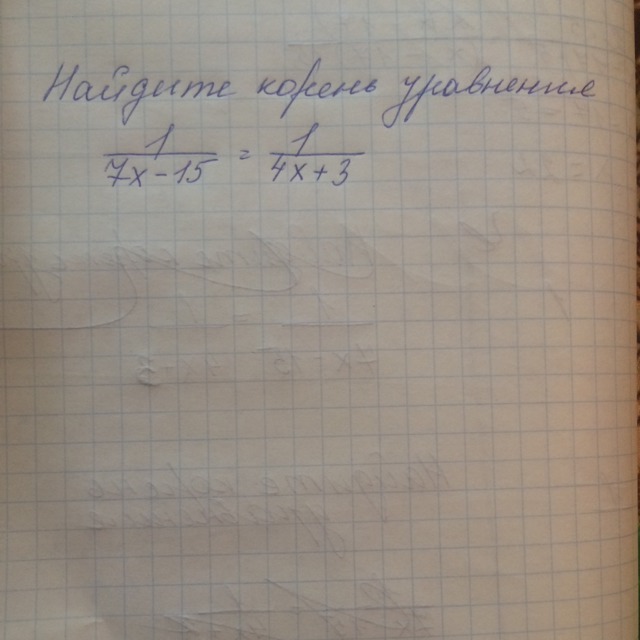 Найдите корень уравнения
1/(7x-15) = 1/(4x+3)